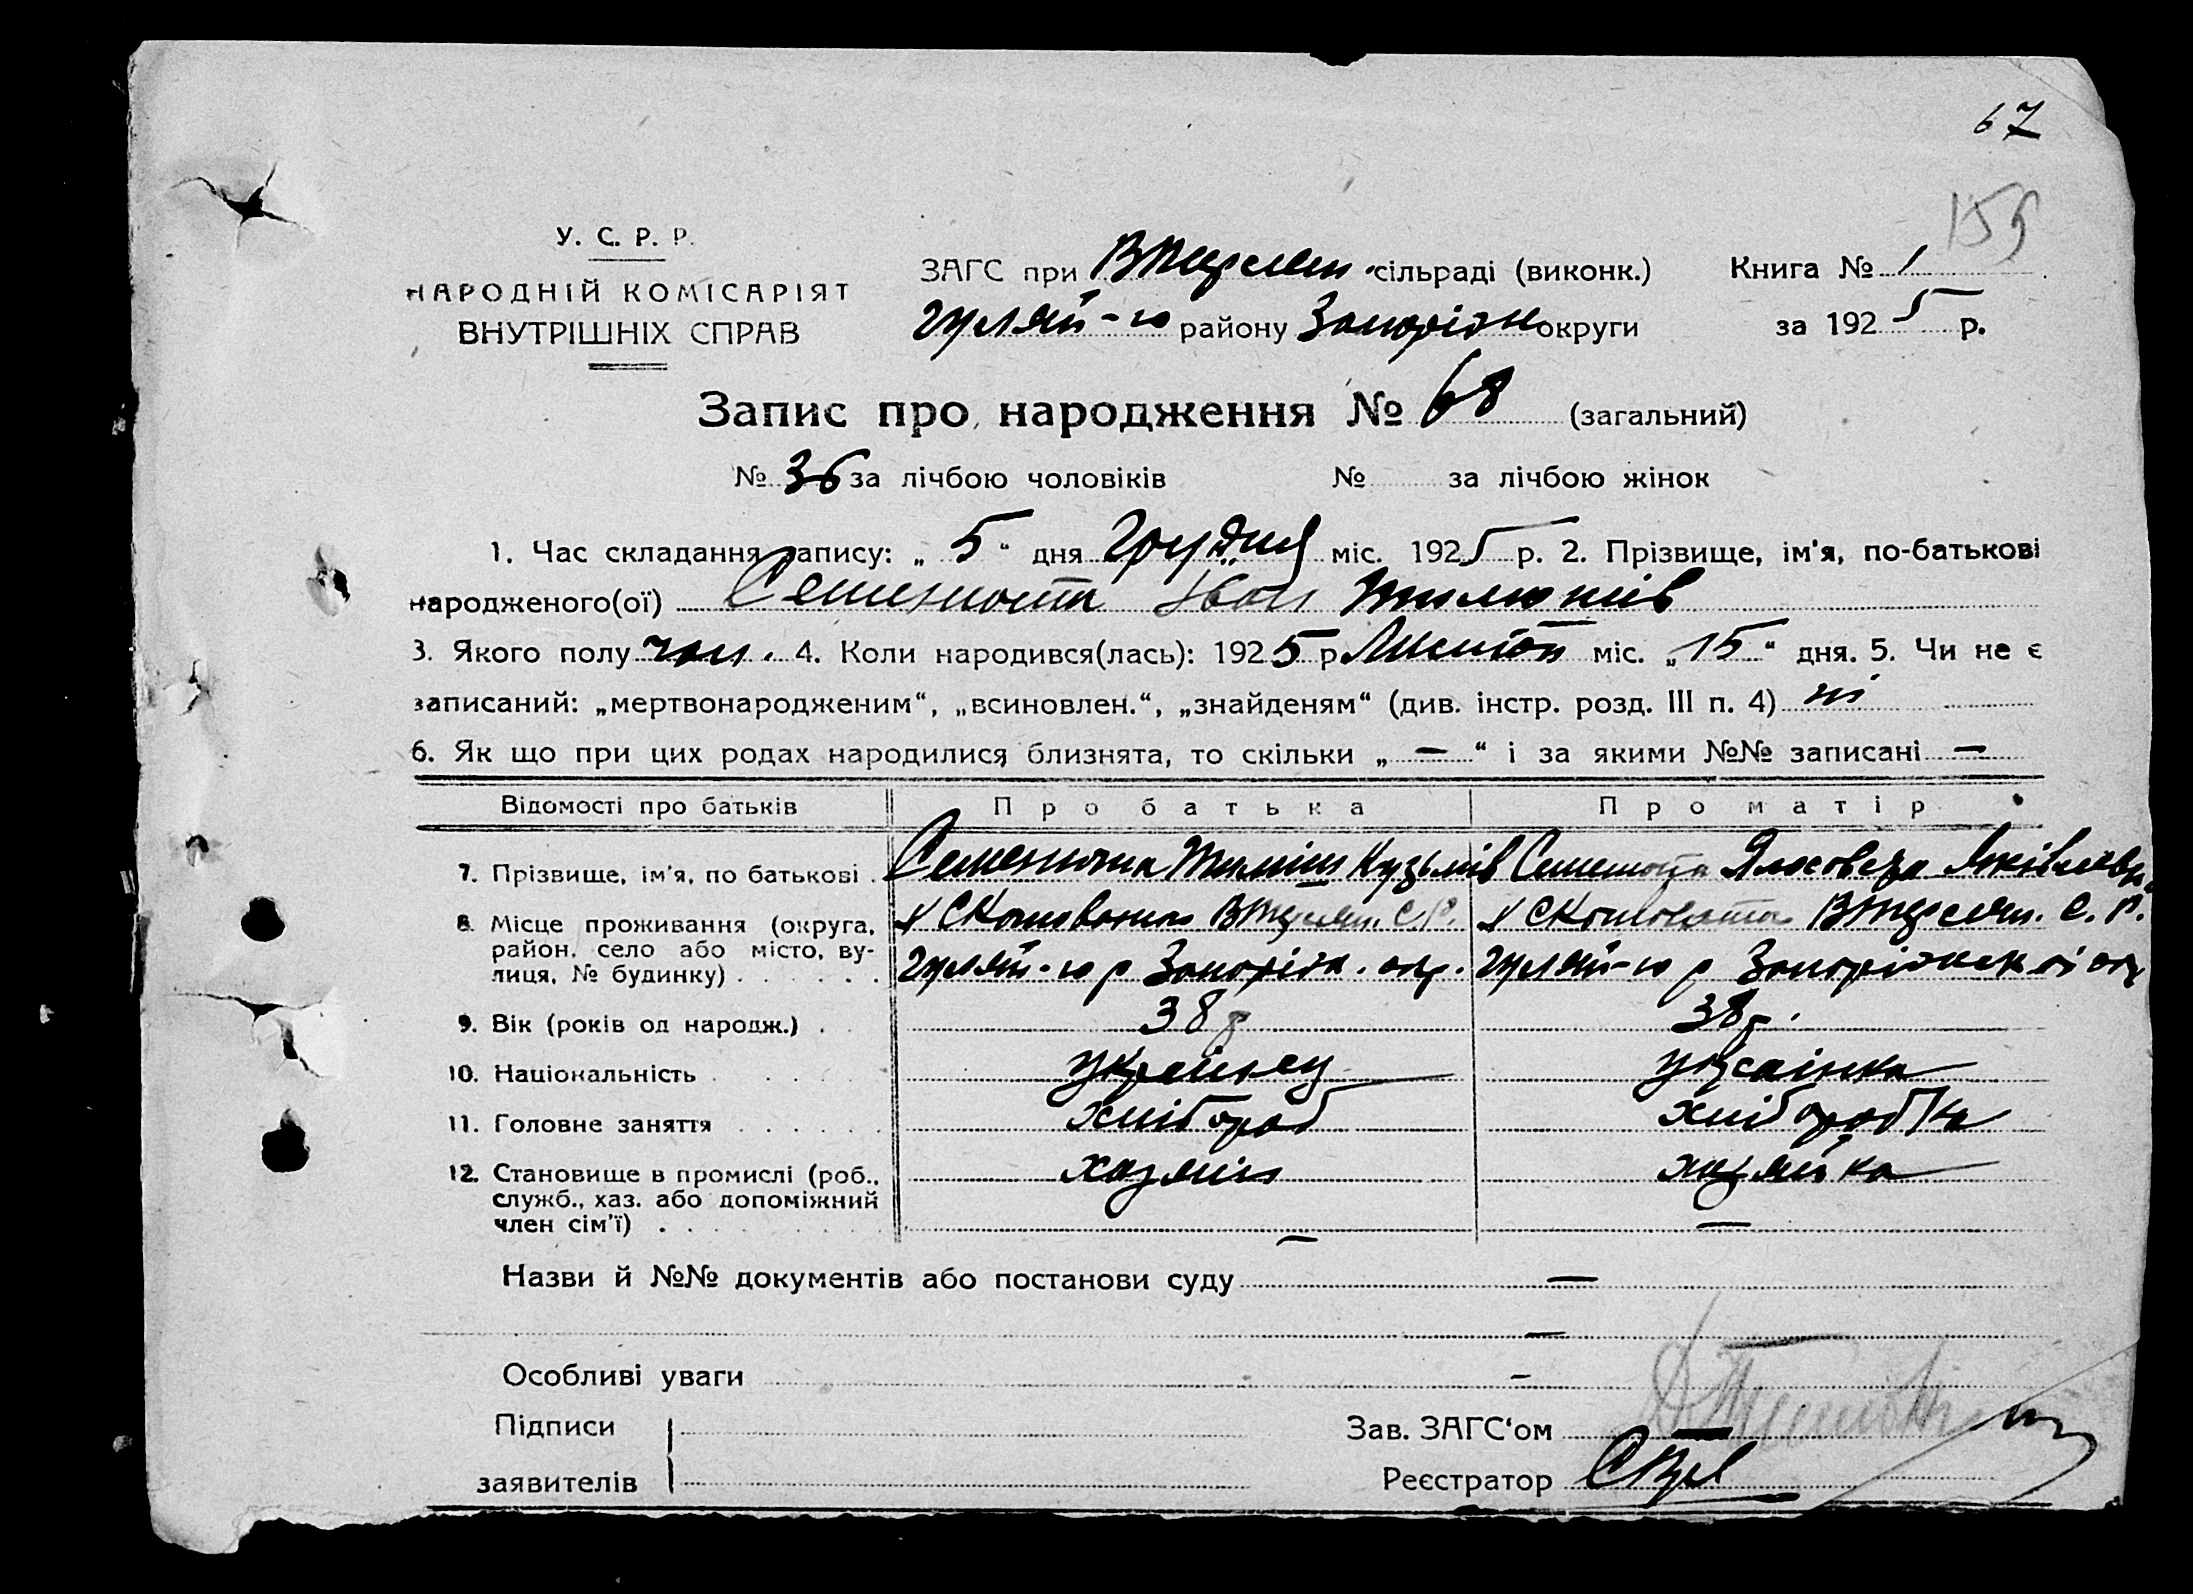 67
159
У. С. Р. Р.
НАРОДНІЙ КОМІСАРІЯТ
ВНУТРІШНІХ СПРАВ
ЗАГС при сільраді (виконк.) Книга № 1
Гуляй-го району Запоріж округи за 1925 р.
Запис про народження № 68 (загальний)
№ 36 за лічбою чоловіків № за лічбою жінок
1. Час складання запису: „ 5 “ дня Грудня міс. 1925 р. 2. Прізвище, ім'я, по-батькові
народженого(ої) Семенюта Іван
3. Якого полу чол. 4. Коли народився(лась): 1925 р. Листоп міс. „ 15 “ дня. 5. Чи не є
записаний: „мертвонародженим“, „всиновлен.“, „знайденям“ (див. інстр. розд. III п. 4) ні
6. Як що при цих родах народилися близнята, то скільки „ — “ і за якими №№ записані —
Відомості про батьків Про батька Про матір
7. Прізвище, ім'я, по батькові . Семенюта Кузьмів Семенюта Яківлевн
8. Місце проживання (округа, район, село або місто, вулиця, № будинку) . . . . . .
С.Р. С. Р.
Гуляй-го р Запоріж. окр. Гуляй-го р Запоріжської окр
9. Вік (років од народж.) . 38 р 38 р.
10. Національність . . . . . українец українка
11. Головне заняття . . . . . хлібороб хліборобка
12. Становище в промислі (роб., служб., хаз. або допоміжний член сім'ї) . . . . . . хазяїн хазяйка
—
—
Назви й №№ документів або постанови суду —
—
Особливі уваги —
Підписи
заявителів
Зав. ЗАГС‘ом
Реєстратор